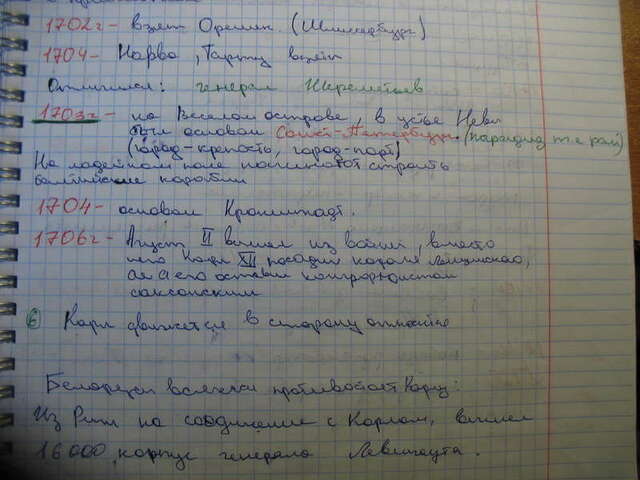 1702г- взят Орешек. (Шлиссельбург)
1704- Нарва, Тарту взяты
Отличился: генерал Шереметьев
1703г- на Веселом острове, в устье Невы
был основан Санкт-Петербург. (парадиз т.е рай)
(город-крепость, город-порт)
На лодейном поле начинают строить
балтийские корабли
1704- основан Кронштадт.
1706г- Август II вышел из войны, вместо
него Карл XII посадил короля Лещинского,
а его оставил курфюрстом
саксонским
6 Карл движется в сторону
Белорусы всячески противостоят Карлу:
Из Риги на соединение с Карлом, вышел
16000 корпус генерала Левенгаупта.